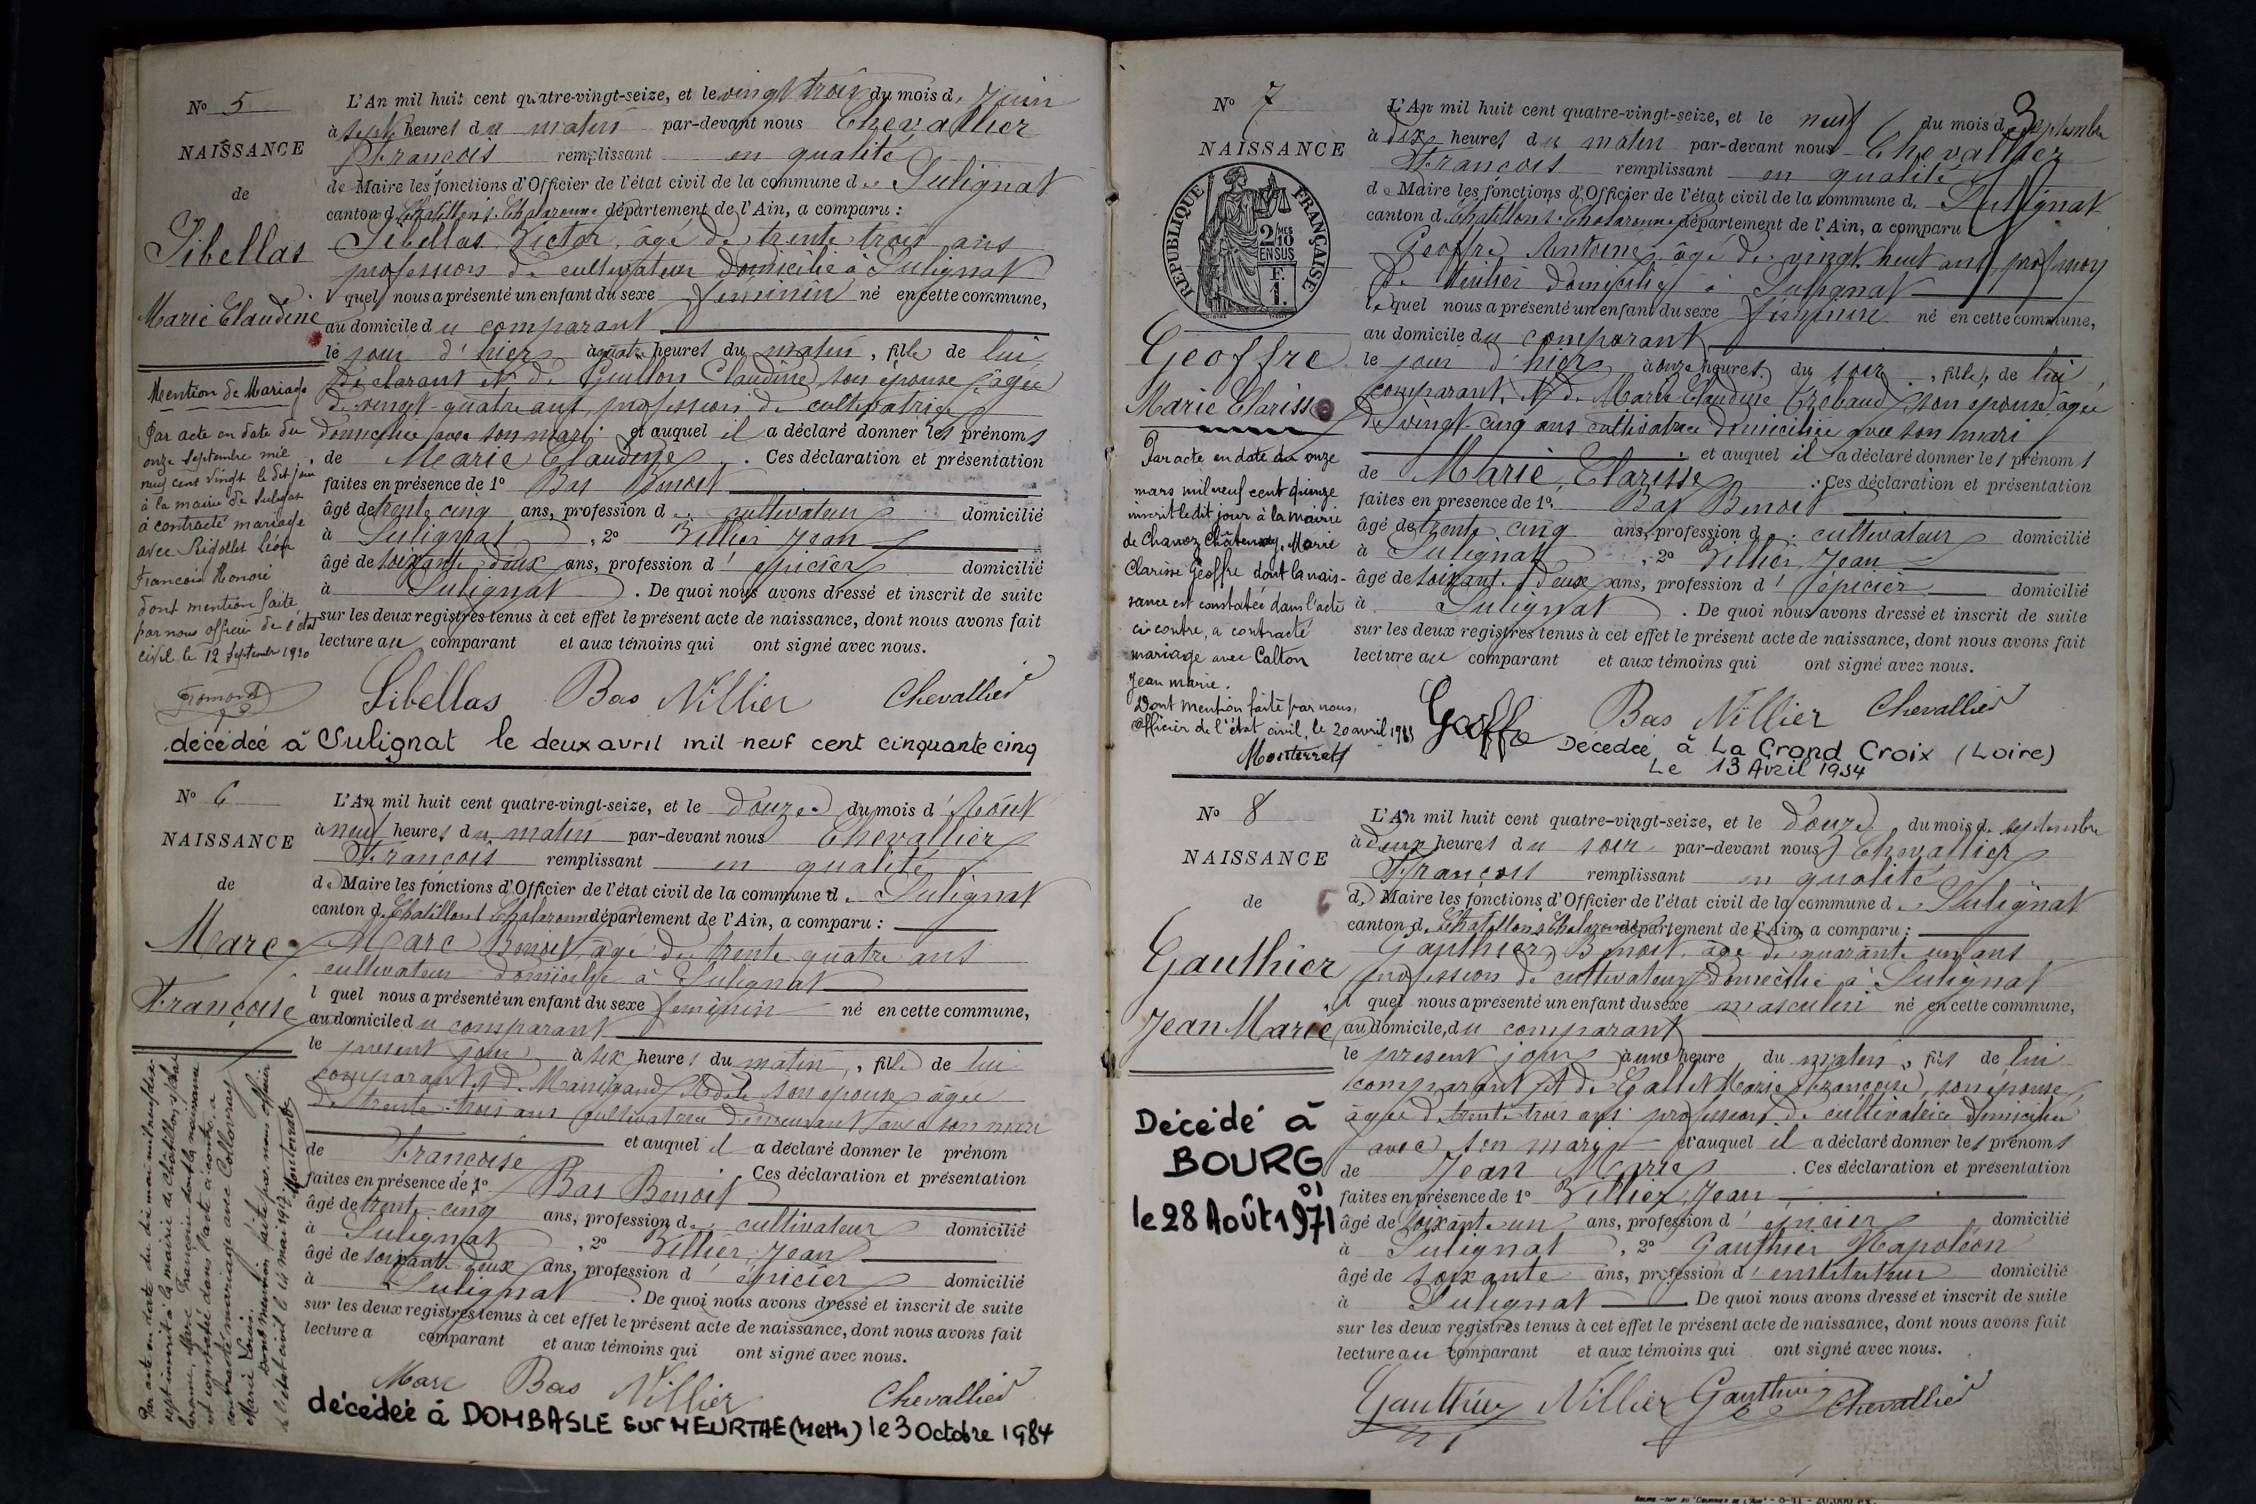 No 5
NAISSANCE
de
Sibellas
Marie Claudine
Mention de Mariage
Par acte en date du
onze Septembre mil
neuf cent vingt le dit jour
à la mairie de Sulignat
a contracté mariage
avec Rigollet Léon
François Honoré
dont mention faite
par nous officier de l'état
civil le 12 Septembre 1920
L'An mil huit cent quatre-vingt-seize, et le vingt trois du mois de Juin
à sept heures du matin par-devant nous Chevallier
François remplissant en qualité
de Maire les fonctions d'Officier de l'état civil de la commune de Sulignat
canton de Chatillon s. Chalaronne département de l'Ain, a comparu :
Sibellas Victor, âgé de trente trois ans
profession de cultivateur domicilié à Sulignat
lequel nous a présenté un enfant du sexe féminin né en cette commune,
au domicile du comparant
le jour d'hier à quatre heures du matin, fille de lui
déclarant et de Guillon Claudine son épouse âgée
de vingt-quatre ans, profession de cultivatrice
domiciliée avec son mari et auquel il a déclaré donner les prénoms
de Marie Claudine. Ces déclaration et présentation
faites en présence de 1° Bas Benoit
âgé de trente cinq ans, profession de cultivateur domicilié
à Sulignat, 2° Villier Jean
âgé de soixante deux ans, profession d'épicier domicilié
à Sulignat. De quoi nous avons dressé et inscrit de suite
sur les deux registres tenus à cet effet le présent acte de naissance, dont nous avons fait
lecture au comparant et aux témoins qui ont signé avec nous.
Sibellas Bas Villier Chevallier
décédée à Sulignat le deux avril mil neuf cent cinquante cinq
No 6
NAISSANCE
de
Marc
Françoise
Par acte en date du dix mai mil neuf dix
sept inscrit à la mairie de Châtillon s/Chal
aronne, Marc Françoise dont la naissance
est constatée dans l'acte ci-contre, a
contracté mariage avec Collovray
Marie Louis.
Dont mention faite par nous officier
de l'état civil le 12 mai 1917. Monterrat
L'An mil huit cent quatre-vingt-seize, et le douze du mois d'Août
à neuf heures du matin par-devant nous Chevallier
François remplissant en qualité
de Maire les fonctions d'Officier de l'état civil de la commune de Sulignat
canton de Chatillon s Chalaronne département de l'Ain, a comparu :
Marc Benoit, âgé de trente quatre ans
cultivateur domicilié à Sulignat
lquel nous a présenté un enfant du sexe féminin né en cette commune,
au domicile du comparant
le présent jour à six heures du matin, fille de lui
comparant et de Manigand Adèle son épouse âgée
de trente-trois ans cultivatrice demeurant avec son mari
et auquel il a déclaré donner le prénom
de Françoise Ces déclaration et présentation
faites en présence de 1° Bas Benoit
âgé de trente cinq ans, profession de cultivateur domicilié
à Sulignat, 2° Villier Jean
âgé de soixante deux ans, profession d'épicier domicilié
à Sulignat. De quoi nous avons dressé et inscrit de suite
sur les deux registres tenus à cet effet le présent acte de naissance, dont nous avons fait
lecture a comparant et aux témoins qui ont signé avec nous.
Marc Bas Villier Chevallier
décédée à DOMBASLE sur MEURTHE (Meth) le 3 Octobre 1984
3
No 7
NAISSANCE
RÉPUBLIQUE FRANÇAISE
2/10 MES
EN SUS
F.
1.
Geoffre
Marie Clarisse
Par acte en date du onze
mars mil neuf cent quinze
inscrit ledit jour à la mairie
de Chanoz Châtenay, Marie
Clarisse Geoffre dont la nais-
sance est constatée dans l'acte
ci-contre, a contracté
mariage avec Calton
Jean marie.
Dont mention faite par nous,
officier de l'état civil, le 20 avril 1915
Monterrat
L'An mil huit cent quatre-vingt-seize, et le neuf du mois de Septembre
à dix heures du matin par-devant nous Chevallier
François remplissant en qualité
de Maire les fonctions d'Officier de l'état civil de la commune de Sulignat
canton de Chatillon s. Chalaronne département de l'Ain, a comparu
Geoffre Antoine, âgé de vingt huit ans, profession
de domicilié à Sulignat
lequel nous a présenté un enfant du sexe féminin né en cette commune,
au domicile du comparant
le jour d'hier à onze heures du soir, fille de lui
comparant, et de Marie Claudine Crébaud son épouse âgée
de vingt-cinq ans cultivatrice domiciliée avec son mari
et auquel il a déclaré donner les prénoms
de Marie Clarisse. Ces déclaration et présentation
faites en présence de 1° Bas Benoit
âgé de trente cinq ans, profession de cultivateur domicilié
à Sulignat, 2° Villier Jean
âgé de soixante deux ans, profession d'épicier domicilié
à Sulignat. De quoi nous avons dressé et inscrit de suite
sur les deux registres tenus à cet effet le présent acte de naissance, dont nous avons fait
lecture au comparant et aux témoins qui ont signé avec nous.
Geoffre Bas Villier Chevallier
Décédée à La Grand Croix (Loire)
Le 13 Avril 1954
No 8
NAISSANCE
de
Gauthier
Jean Marie
Décédé à
BOURG
01
le 28 Août 1971
L'An mil huit cent quatre-vingt-seize, et le douze du mois de septembre
à deux heures du soir par-devant nous Chevallier
François remplissant en qualité
de Maire les fonctions d'Officier de l'état civil de la commune de Sulignat
canton de Chatillon s Chalaronne département de l'Ain, a comparu :
Gauthier Benoit, âgé de quarante un ans
profession de cultivateur domicilié à Sulignat
lquel nous a présenté un enfant du sexe masculin né en cette commune,
au domicile du comparant
le présent jour à une heure du matin, fils de lui
comparant et de Gallet Marie Françoise, son épouse,
âgée de trente trois ans profession de cultivatrice domiciliée
avec son mari et auquel il a déclaré donner les prénoms
de Jean Marie. Ces déclaration et présentation
faites en présence de 1° Villier Jean
âgé de soixante un ans, profession d'épicier domicilié
à Sulignat, 2° Gauthier Napoléon
âgé de soixante ans, profession d'instituteur domicilié
à Sulignat De quoi nous avons dressé et inscrit de suite
sur les deux registres tenus à cet effet le présent acte de naissance, dont nous avons fait
lecture au comparant et aux témoins qui ont signé avec nous.
Gauthier Villier Gauthier Chevallier